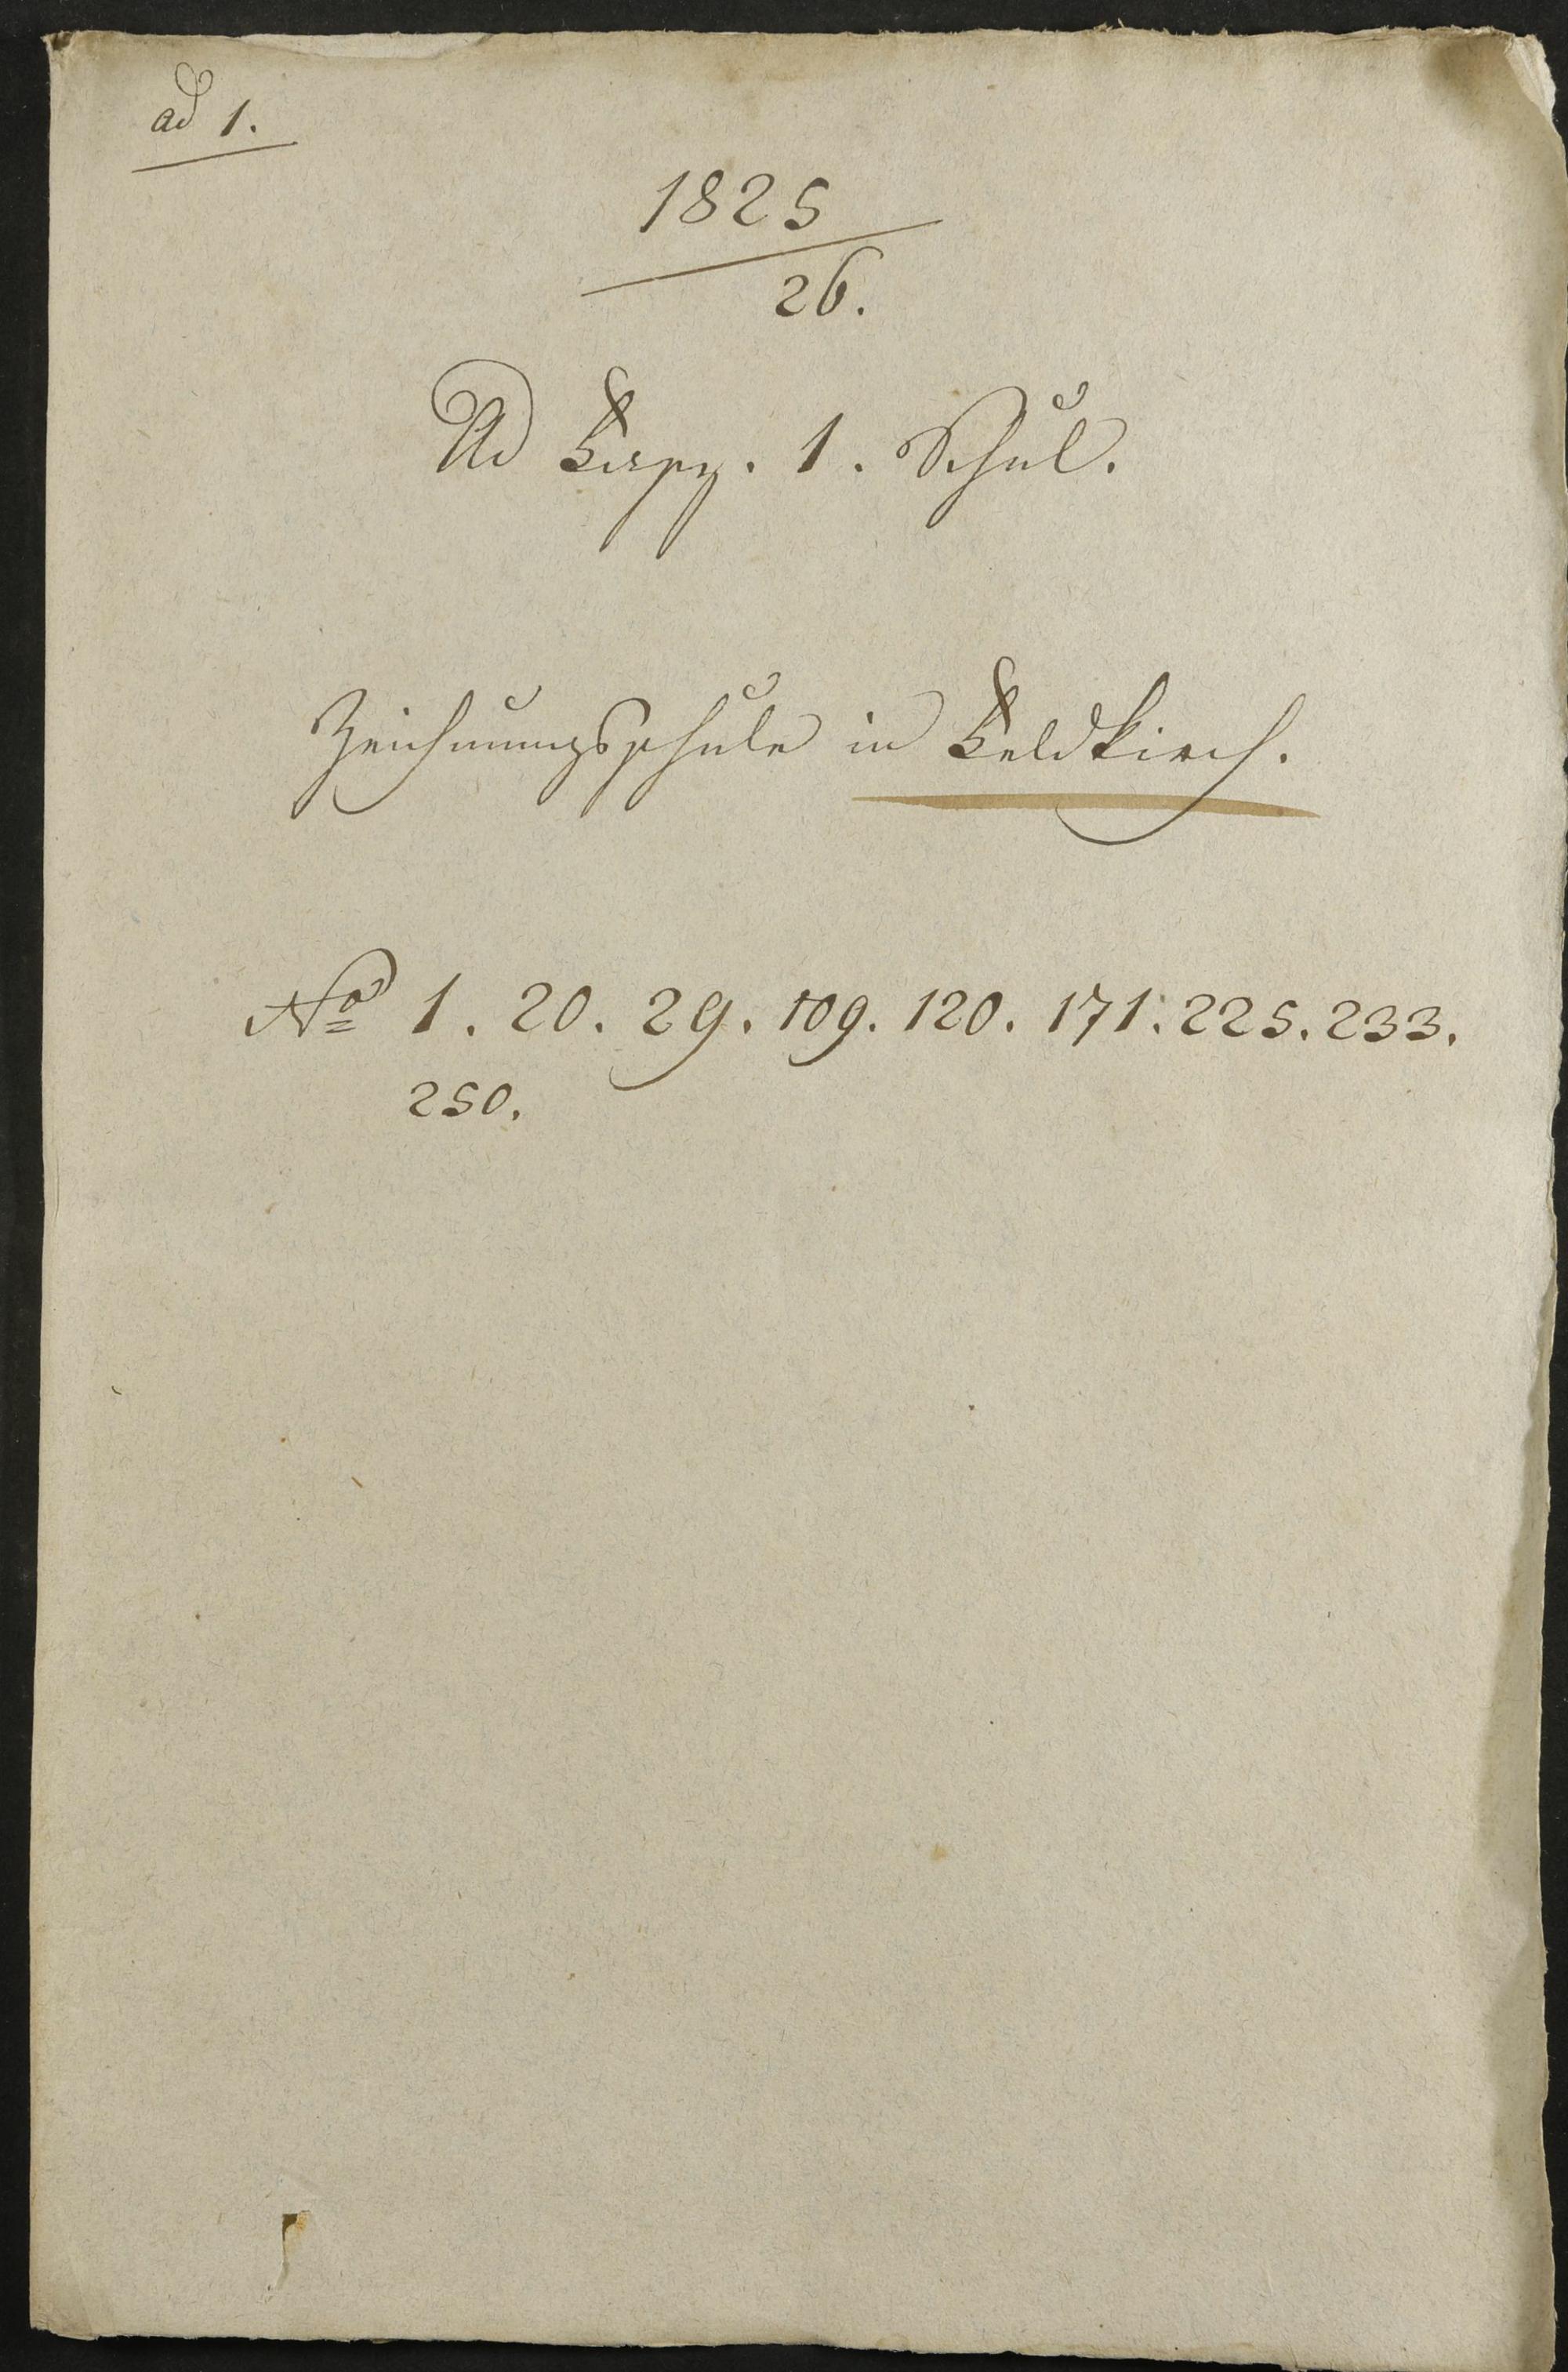 ad 1.
1825
26.
Ad Fasz. 1. Schul.
Zeichnungsschule in Feldkirch.
No 1. 20. 29. 109. 120. 171. 225. 233.
250.